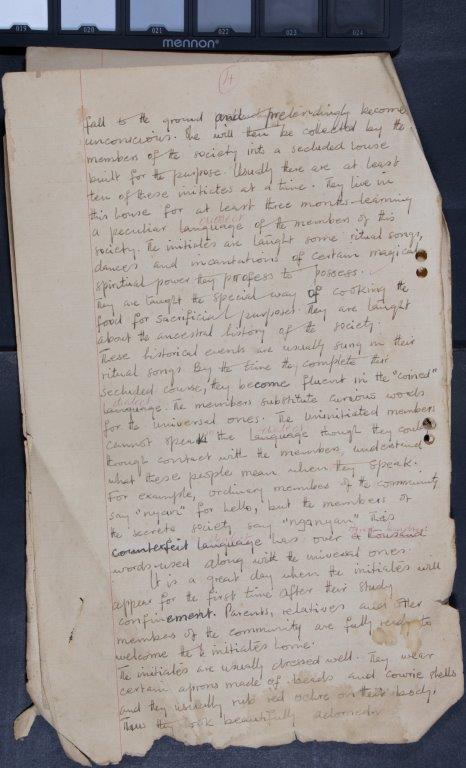 019 020 021 022 023 024
mennon
4
fall to the ground and pretendingly become
unconscious. He will then be collected by the
members of the society into a secluded house
built for the purpose. Usually there are at least
ten of these initiates at a time. They live in
this house for at least three months learning
a peculiar language of the members of this
society. The initiates are taught some ritual songs,
dances and incantations of certain magical
spiritual power they profess to possess.
They are taught the special way of cooking the
food for sacrificial purposes. They are taught
about the ancestral history of the society.
These historical events are usually sung in their
ritual songs. By the time they complete their
secluded course, they become fluent in the "coined"
dialect
language. The members substitute curious words
for the universal ones. The uninitiated members
dialect
cannot speak the language though they could
through contact with the members, understand
what these people mean when they speak.
For example, ordinary member of the community
say "nyan" for hello, but the members of
the secrete society say "nganyan". This
counterfeit language has over a thousand
words used along with the universal ones.
It is a great day when the initiates will
appear for the first time after their study
confinement. Parents, relatives and other
members of the community are fully ready to
welcome the initiates home.
The initiates are usually dressed well. They wear
certain aprons made of beads and cowrie shells
and they usually rub red ochre on their body.
Thus they look beautifully adorned.